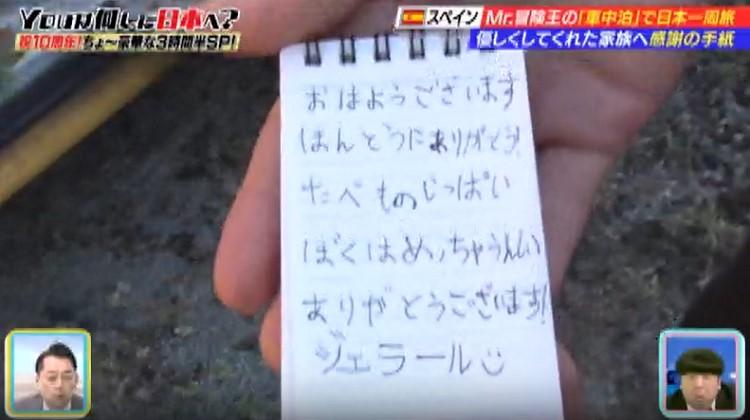 YOUは何しに日本へ?
祝10周年!ちょ〜豪華な3時間半SP!
スペイン Mr.冒険王の「車中泊」で日本一周旅
優しくしてくれた家族へ感謝の手紙
おはようございます
ほんとうにありがとう!
たべものじっぱい
ぼくはめっちゃうれしい
ありがとうございます!
ジェラール